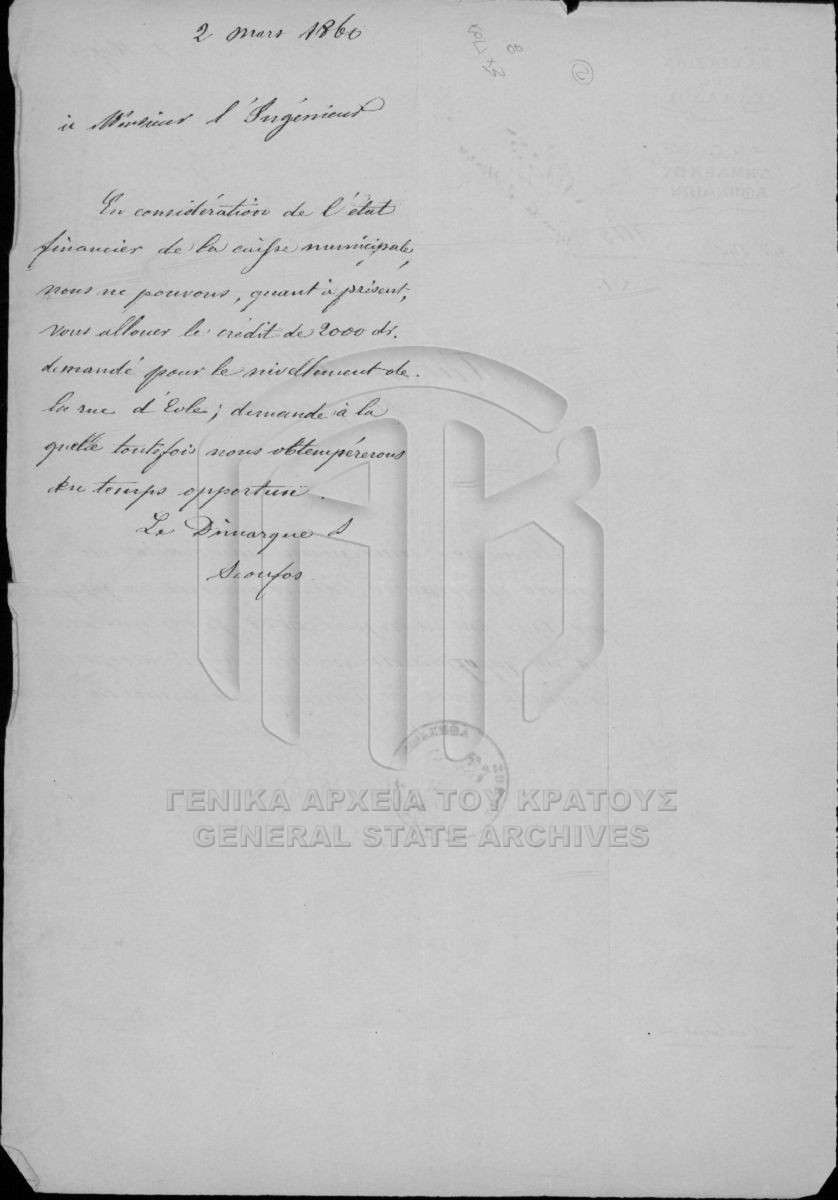 2 mars 1860
à Monsieur l'Ingénieur
En considération de l'état
financier de la caisse municipale,
nous ne pouvons, quant à présent,
vous allouer le crédit de 2000 dr.
demandé pour le nivellement de
la rue d'Eole; demande à la
quelle toutefois nous obtempérerons
en temps opportun.
Le Dimarque
Scoufos
ΓΕΝΙΚΑ ΑΡΧΕΙΑ ΤΟΥ ΚΡΑΤΟΥΣ
GENERAL STATE ARCHIVES